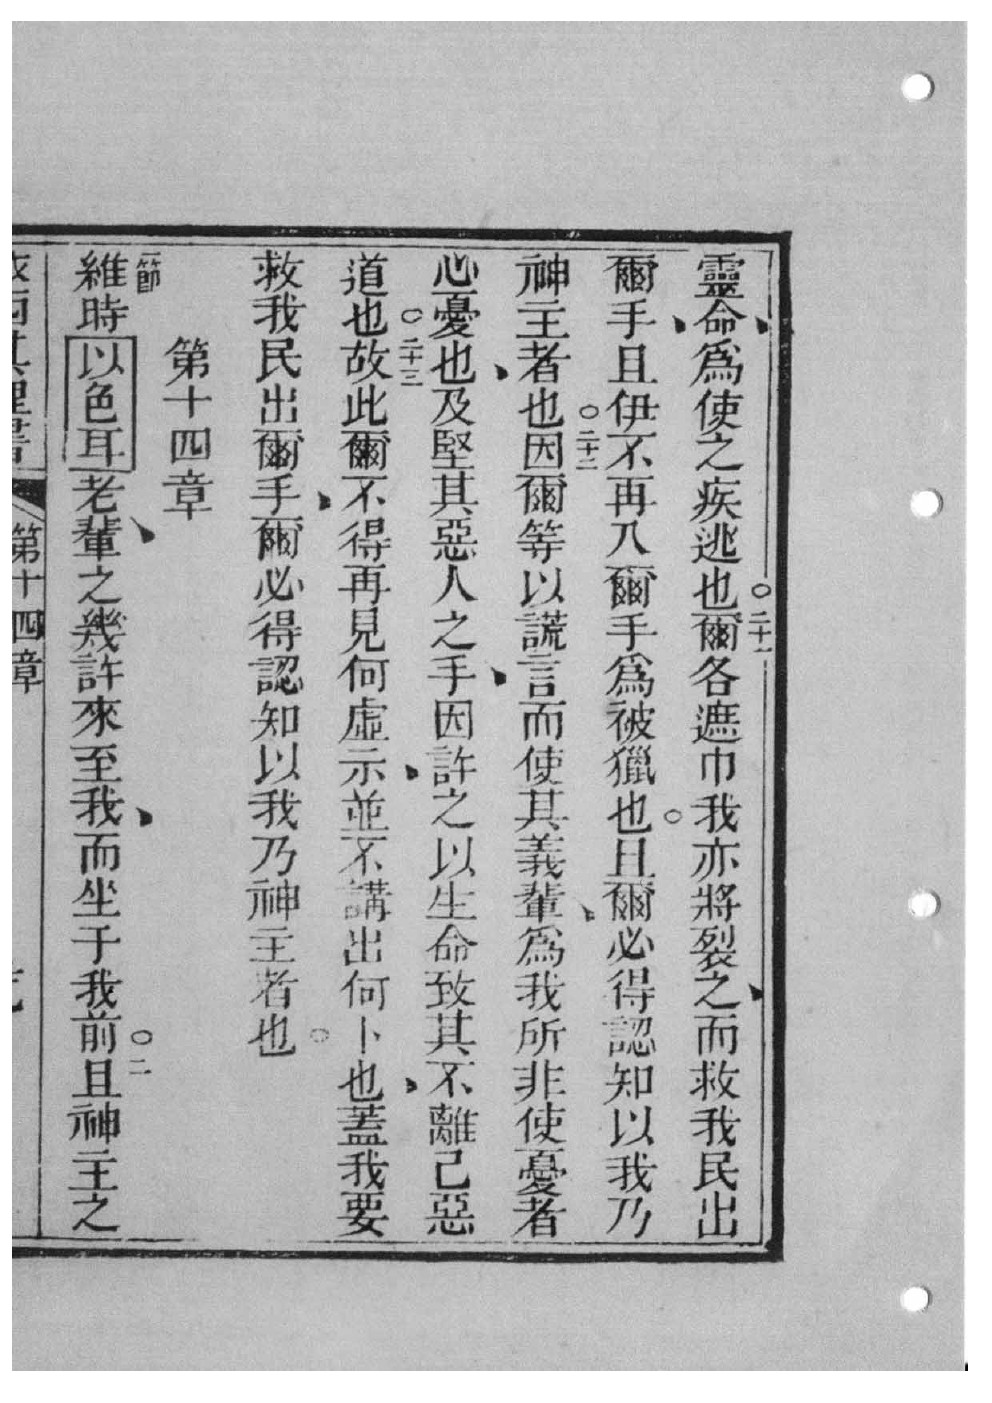 靈命爲使之疾逃也○二十一爾各遮巾我亦將裂之而救我民出
爾手且伊不再入爾手爲被獵也○且爾必得認知以我乃
神主者也○二十二因爾等以謊言而使其義輩爲我所非使憂者
心憂也及堅其惡人之手因許之以生命致其不離己惡
道也○二十三故此爾不得再見何虛示並不講出何卜也蓋我要
救我民出爾手爾必得認知以我乃神主者也○
第十四章
一節維時以色耳老輩之幾許來至我而坐于我前○二且神主之
第十四章